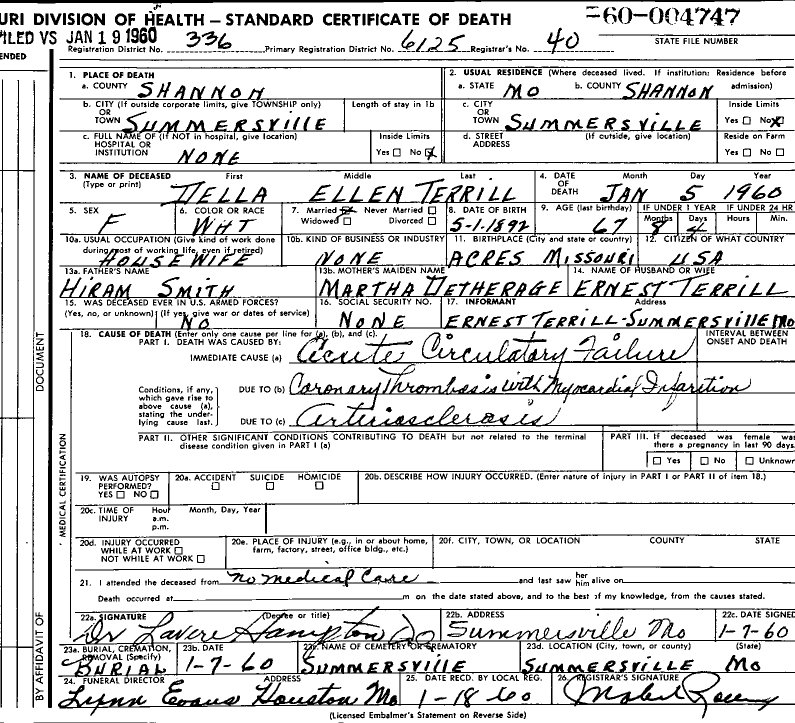 URI DIVISION OF HEALTH — STANDARD CERTIFICATE OF DEATH
=60-004747
FILED VS JAN 19 1960
Registration District No. 336 Primary Registration District No. 6125 Registrar's No. 40
STATE FILE NUMBER
ENDED
1. PLACE OF DEATH
a. COUNTY SHANNON
2. USUAL RESIDENCE (Where deceased lived. If institution: Residence before admission)
a. STATE MO b. COUNTY SHANNON
b. CITY (If outside corporate limits, give TOWNSHIP only) OR TOWN SUMMERSVILLE
Length of stay in 1b
c. CITY OR TOWN SUMMERSVILLE
Inside Limits
Yes ☐ No ☒
c. FULL NAME OF (If NOT in hospital, give location) HOSPITAL OR INSTITUTION NONE
Inside Limits
Yes ☐ No ☒
d. STREET ADDRESS (If outside, give location)
Reside on Farm
Yes ☐ No ☐
3. NAME OF DECEASED (Type or print)
First Middle Last
DELLA ELLEN TERRILL
4. DATE OF DEATH
Month Day Year
JAN 5 1960
5. SEX
F
6. COLOR OR RACE
WHT
7. Married ☒ Never Married ☐
Widowed ☐ Divorced ☐
8. DATE OF BIRTH
5-1-1892
9. AGE (last birthday)
67
IF UNDER 1 YEAR
Months Days
8 4
IF UNDER 24 HR
Hours Min.
10a. USUAL OCCUPATION (Give kind of work done during most of working life, even if retired)
HOUSEWIFE
10b. KIND OF BUSINESS OR INDUSTRY
NONE
11. BIRTHPLACE (City and state or country)
ACRES MISSOURI
12. CITIZEN OF WHAT COUNTRY
USA
13a. FATHER'S NAME
HIRAM SMITH
13b. MOTHER'S MAIDEN NAME
MARTHA DETHERAGE
14. NAME OF HUSBAND OR WIFE
ERNEST TERRILL
15. WAS DECEASED EVER IN U.S. ARMED FORCES?
(Yes, no, or unknown) (If yes, give war or dates of service)
NO
16. SOCIAL SECURITY NO.
NONE
17. INFORMANT Address
ERNEST TERRILL-SUMMERSVILLE Mo
18. CAUSE OF DEATH (Enter only one cause per line for (a), (b), and (c).
PART I. DEATH WAS CAUSED BY:
INTERVAL BETWEEN ONSET AND DEATH
IMMEDIATE CAUSE (a) Acute Circulatory Failure
Conditions, if any, which gave rise to above cause (a), stating the underlying cause last.
DUE TO (b) Coronary Thrombosis with Myocardial Infarction
DUE TO (c) arteriosclerosis
PART II. OTHER SIGNIFICANT CONDITIONS CONTRIBUTING TO DEATH but not related to the terminal disease condition given in PART I (a)
PART III. If deceased was female was there a pregnancy in last 90 days.
☐ Yes ☐ No ☐ Unknown
19. WAS AUTOPSY PERFORMED?
YES ☐ NO ☐
20a. ACCIDENT SUICIDE HOMICIDE
☐ ☐ ☐
20b. DESCRIBE HOW INJURY OCCURRED. (Enter nature of injury in PART I or PART II of item 18.)
20c. TIME OF INJURY
Hour a.m. p.m.
Month, Day, Year
20d. INJURY OCCURRED
WHILE AT WORK ☐
NOT WHILE AT WORK ☐
20e. PLACE OF INJURY (e.g., in or about home, farm, factory, street, office bldg., etc.)
20f. CITY, TOWN, OR LOCATION COUNTY STATE
21. I attended the deceased from no medical Care and last saw her him alive on
Death occurred at m on the date stated above, and to the best of my knowledge, from the causes stated.
22a. SIGNATURE (Degree or title)
Dr Lavere Hampton DO
22b. ADDRESS
Summersville Mo
22c. DATE SIGNED
1-7-60
23a. BURIAL, CREMATION, REMOVAL (Specify)
BURIAL
23b. DATE
1-7-60
23c. NAME OF CEMETERY OR CREMATORY
SUMMERSVILLE
23d. LOCATION (City, town, or county) (State)
SUMMERSVILLE Mo
24. FUNERAL DIRECTOR ADDRESS
Lynn Evans Houston Mo
25. DATE RECD. BY LOCAL REG.
1-18-60
26. REGISTRAR'S SIGNATURE
Mabel
(Licensed Embalmer's Statement on Reverse Side)
DOCUMENT
MEDICAL CERTIFICATION
BY AFFIDAVIT OF